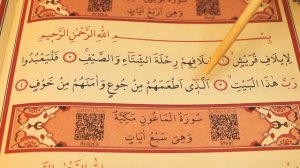 وَهِيَ اَرْبَعُ اٰيَاتٍ
بِسْمِ اللّٰهِ الرَّحْمٰنِ الرَّحٖيمِ
لِاٖيلَافِ قُرَيْشٍۙ ﴿١﴾ اٖيلَافِهِمْ رِحْلَةَ الشِّتَٓاءِ وَالصَّيْفِۚ ﴿٢﴾ فَلْيَعْبُدُوا
رَبَّ هٰذَا الْبَيْتِۙ ﴿٣﴾ اَلَّذٖٓي اَطْعَمَهُمْ مِنْ جُوعٍ وَاٰمَنَهُمْ مِنْ خَوْفٍ ﴿٤﴾
سُورَةُ الْمَاعُونِ مَكِّيَّةٌ
وَهِيَ سَبْعُ اٰيَاتٍ